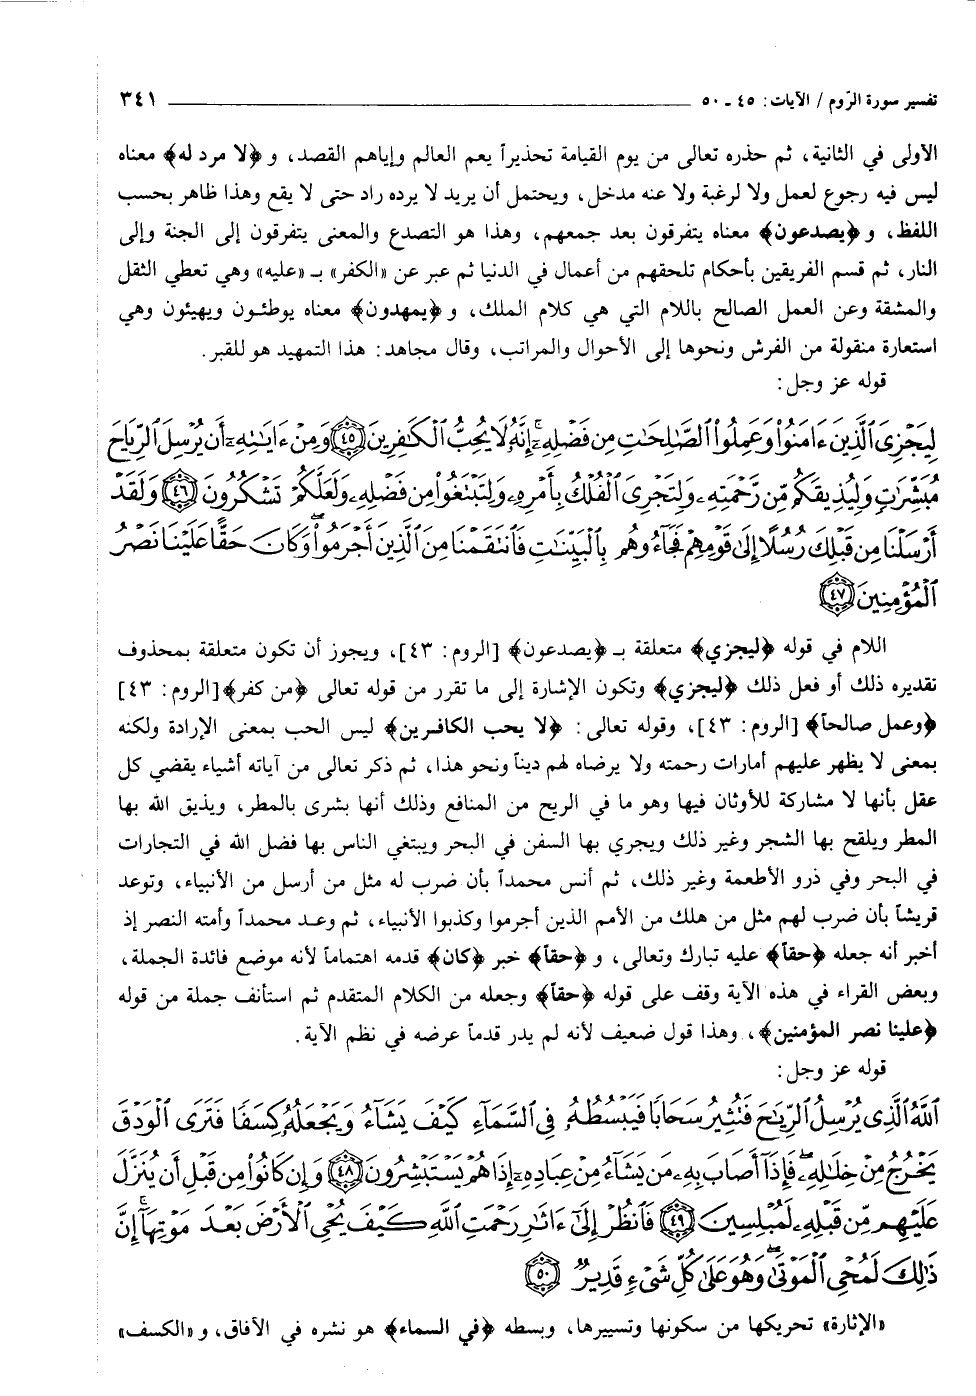 تفسير سورة الرّوم / الآيات: ٤٥ ـ ٥٠ ٣٤١
الأولى في الثانية، ثم حذره تعالى من يوم القيامة تحذيراً يعم العالم وإياهم القصد، و ﴿لا مرد له﴾ معناه
ليس فيه رجوع لعمل ولا لرغبة ولا عنه مدخل، ويحتمل أن يريد لا يرده راد حتى لا يقع وهذا ظاهر بحسب
اللفظ، و ﴿يصدعون﴾ معناه يتفرقون بعد جمعهم، وهذا هو التصدع والمعنى يتفرقون إلى الجنة وإلى
النار، ثم قسم الفريقين بأحكام تلحقهم من أعمال في الدنيا ثم عبر عن «الكفر» بـ «عليه» وهي تعطي الثقل
والمشقة وعن العمل الصالح باللام التي هي كلام الملك، و ﴿يمهدون﴾ معناه يوطئـون ويهيئون وهي
استعارة منقولة من الفرش ونحوها إلى الأحوال والمراتب، وقال مجاهد: هذا التمهيد هو للقبر.
قوله عز وجل:
لِيَجْزِىَ ٱلَّذِينَ ءَامَنُوا۟ وَعَمِلُوا۟ ٱلصَّـٰلِحَـٰتِ مِن فَضْلِهِۦٓ ۚ إِنَّهُۥ لَا يُحِبُّ ٱلْكَـٰفِرِينَ ﴿٤٥﴾ وَمِنْ ءَايَـٰتِهِۦٓ أَن يُرْسِلَ ٱلرِّيَاحَ
مُبَشِّرَٰتٍ وَلِيُذِيقَكُم مِّن رَّحْمَتِهِۦ وَلِتَجْرِىَ ٱلْفُلْكُ بِأَمْرِهِۦ وَلِتَبْتَغُوا۟ مِن فَضْلِهِۦ وَلَعَلَّكُمْ تَشْكُرُونَ ﴿٤٦﴾ وَلَقَدْ
أَرْسَلْنَا مِن قَبْلِكَ رُسُلًا إِلَىٰ قَوْمِهِمْ فَجَآءُوهُم بِٱلْبَيِّنَـٰتِ فَٱنتَقَمْنَا مِنَ ٱلَّذِينَ أَجْرَمُوا۟ ۖ وَكَانَ حَقًّا عَلَيْنَا نَصْرُ
ٱلْمُؤْمِنِينَ ﴿٤٧﴾
اللام في قوله ﴿ليجزي﴾ متعلقة بـ ﴿يصدعون﴾ [الروم: ٤٣]، ويجوز أن تكون متعلقة بمحذوف
تقديره ذلك أو فعل ذلك ﴿ليجزي﴾ وتكون الإشارة إلى ما تقرر من قوله تعالى ﴿من كفر﴾[الروم: ٤٣]
﴿وعمل صالحاً﴾ [الروم: ٤٣]، وقوله تعالى: ﴿لا يحب الكافـرين﴾ ليس الحب بمعنى الإرادة ولكنه
بمعنى لا يظهر عليهم أمارات رحمته ولا يرضاه لهم ديناً ونحو هذا، ثم ذكر تعالى من آياته أشياء يقضي كل
عقل بأنها لا مشاركة للأوثان فيها وهو ما في الريح من المنافع وذلك أنها بشرى بالمطر، ويذيق الله بها
المطر ويلقح بها الشجر وغير ذلك ويجري بها السفن في البحر ويبتغي الناس بها فضل الله في التجارات
في البحر وفي ذرو الأطعمة وغير ذلك، ثم أنس محمداً بأن ضرب له مثل من أرسل من الأنبياء، وتوعد
قريشاً بأن ضرب لهم مثل من هلك من الأمم الذين أجرموا وكذبوا الأنبياء، ثم وعـد محمداً وأمته النصر إذ
أخبر أنه جعله ﴿حقاً﴾ عليه تبارك وتعالى، و ﴿حقاً﴾ خبر ﴿كان﴾ قدمه اهتماماً لأنه موضع فائدة الجملة،
وبعض القراء في هذه الآية وقف على قوله ﴿حقاً﴾ وجعله من الكلام المتقدم ثم استأنف جملة من قوله
﴿علينا نصر المؤمنين﴾، وهذا قول ضعيف لأنه لم يدر قدماً عرضه في نظم الآية.
قوله عز وجل:
ٱللَّهُ ٱلَّذِى يُرْسِلُ ٱلرِّيَـٰحَ فَتُثِيرُ سَحَابًا فَيَبْسُطُهُۥ فِى ٱلسَّمَآءِ كَيْفَ يَشَآءُ وَيَجْعَلُهُۥ كِسَفًا فَتَرَى ٱلْوَدْقَ
يَخْرُجُ مِنْ خِلَـٰلِهِۦ ۖ فَإِذَآ أَصَابَ بِهِۦ مَن يَشَآءُ مِنْ عِبَادِهِۦٓ إِذَا هُمْ يَسْتَبْشِرُونَ ﴿٤٨﴾ وَإِن كَانُوا۟ مِن قَبْلِ أَن يُنَزَّلَ
عَلَيْهِم مِّن قَبْلِهِۦ لَمُبْلِسِينَ ﴿٤٩﴾ فَٱنظُرْ إِلَىٰٓ ءَاثَـٰرِ رَحْمَتِ ٱللَّهِ كَيْفَ يُحْىِ ٱلْأَرْضَ بَعْدَ مَوْتِهَآ ۚ إِنَّ
ذَٰلِكَ لَمُحْىِ ٱلْمَوْتَىٰ ۖ وَهُوَ عَلَىٰ كُلِّ شَىْءٍ قَدِيرٌ ﴿٥٠﴾
«الإثارة» تحريكها من سكونها وتسييرها، وبسطه ﴿في السماء﴾ هو نشره في الآفاق، و «الكسف»